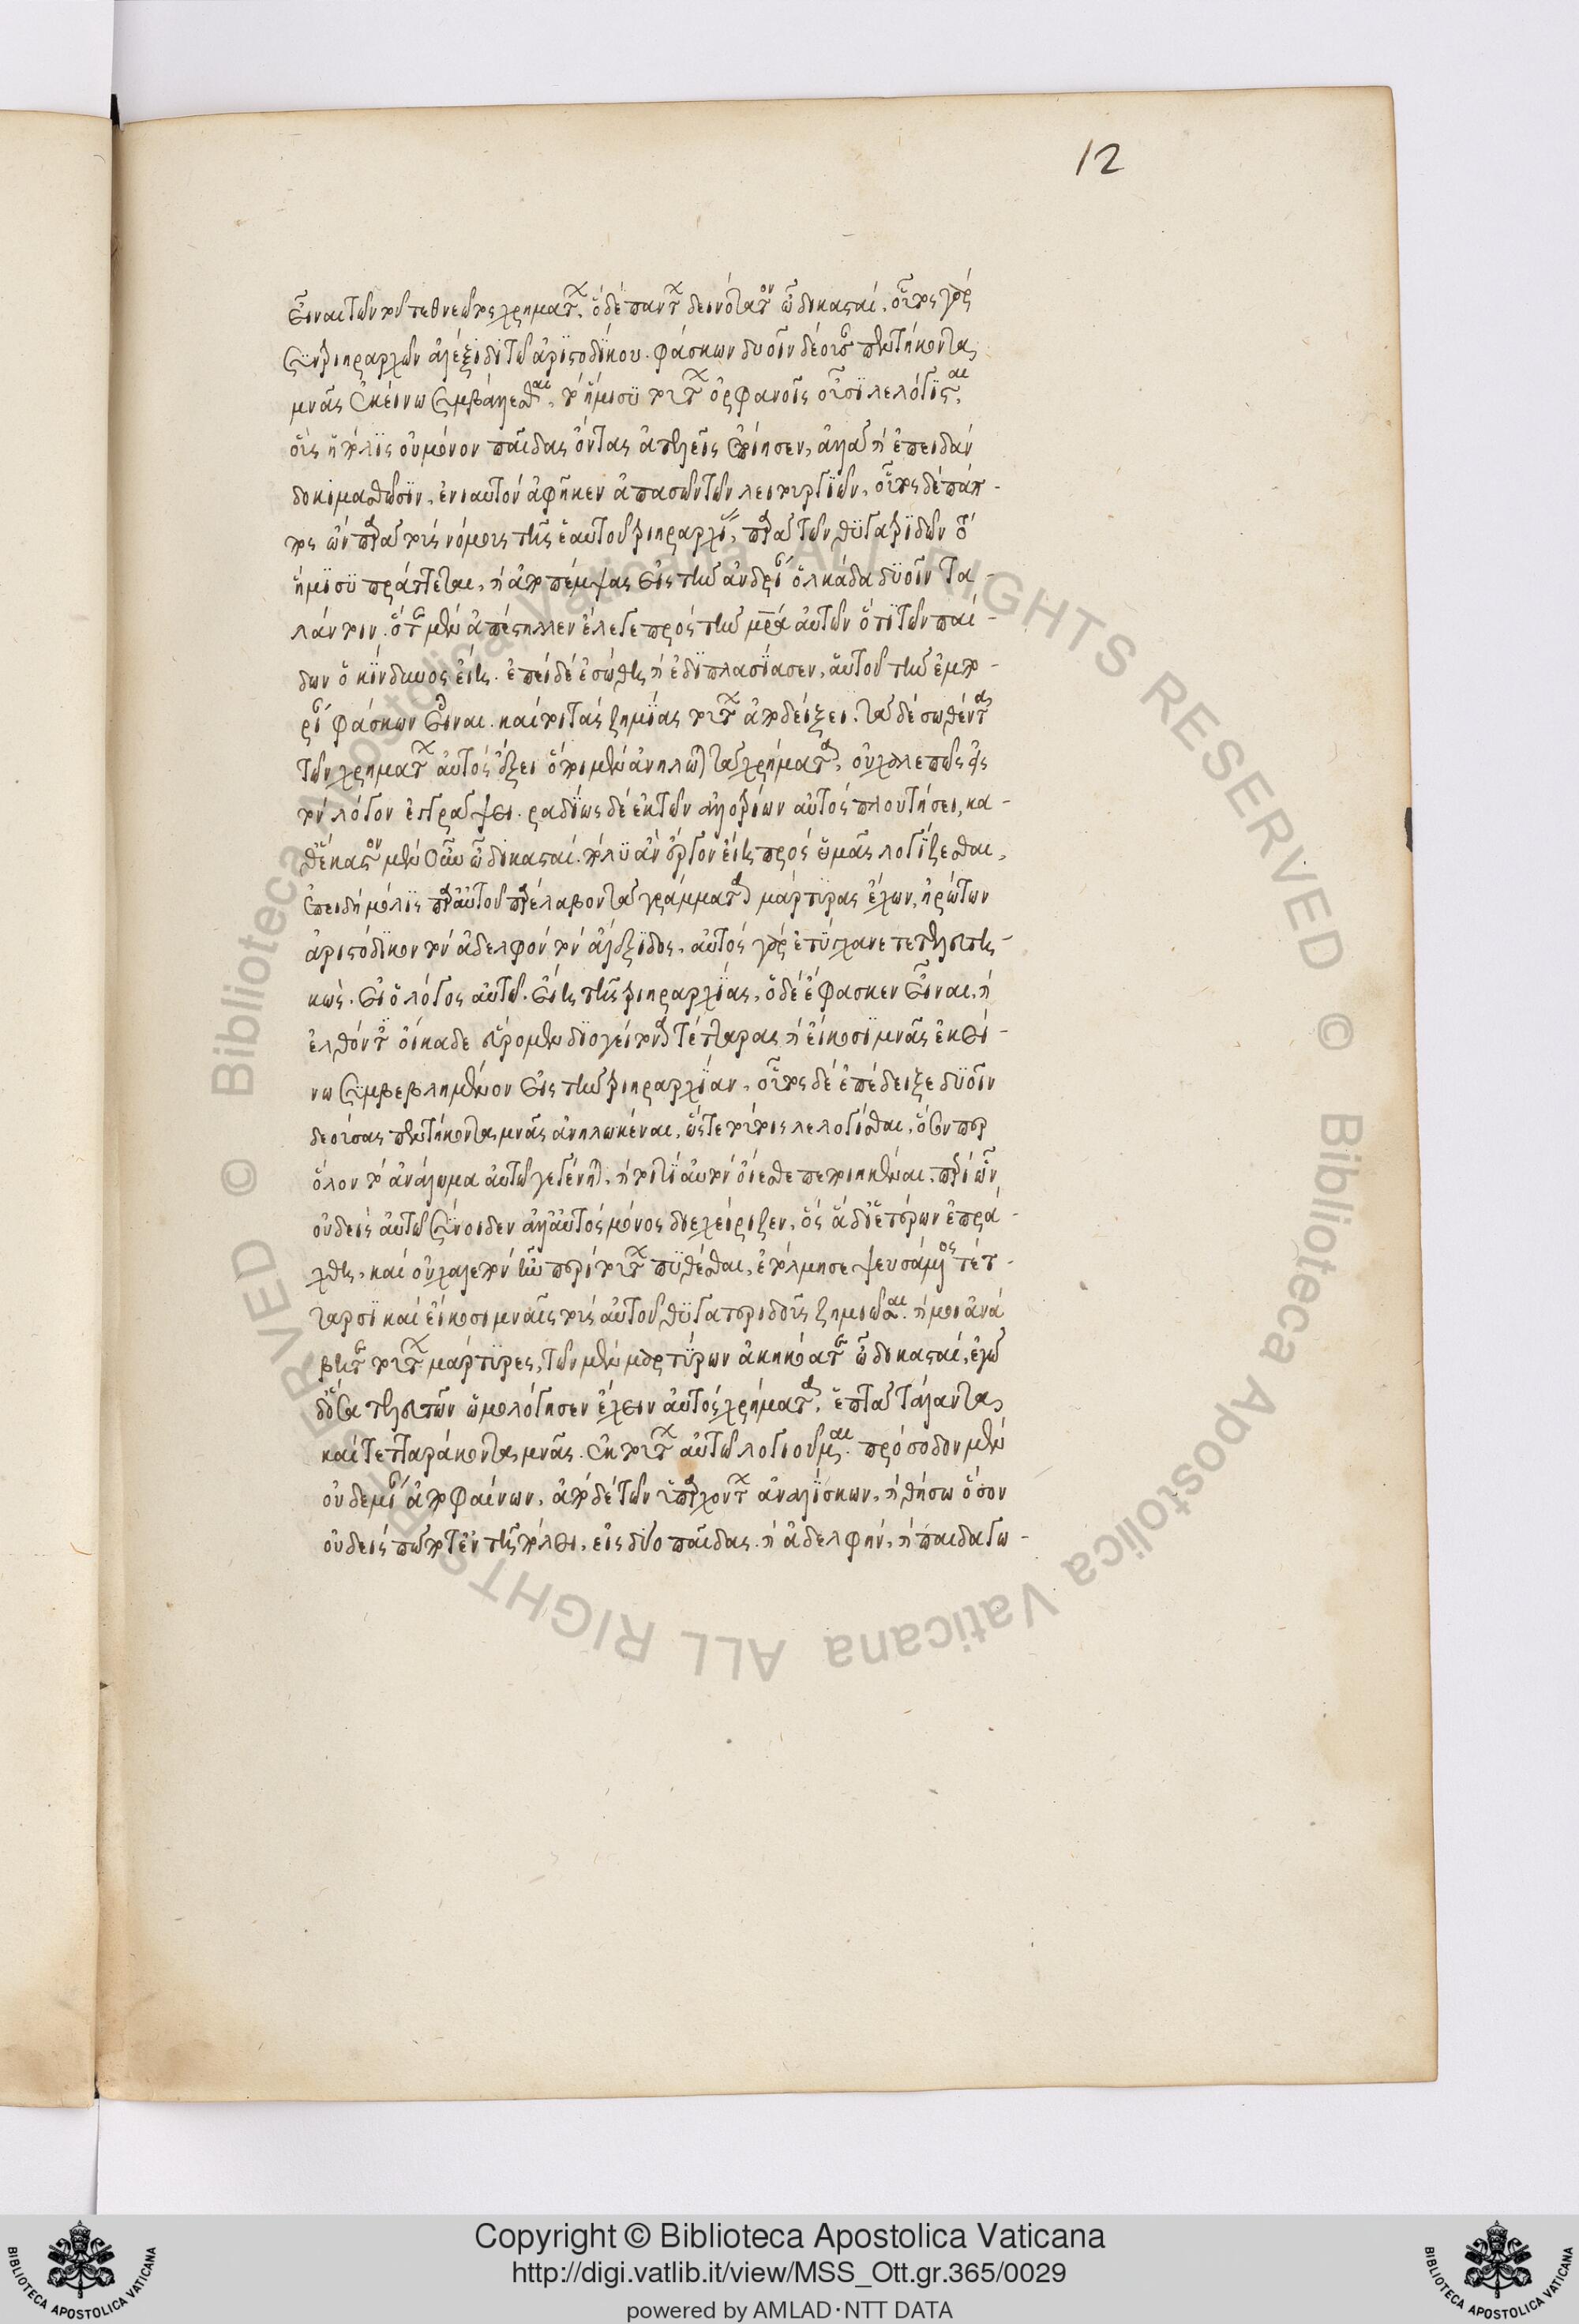 εἶναι τῶν τοῦ τεθνεῶτος χρημάτων. ὃ δὲ πάντων δεινότατον ὦ δικασταί. οὗτος γὰρ
συντριηραρχῶν ἀλέξιδι τῶ ἀριστοδίκου. φάσκων δυοῖν δεούσας πεντήκοντα
μνᾶς ἐκείνω συμβαλέσθαι, τὸ ἥμισυ τούτοις ὀρφανοῖς οὖσι λελόγισται,
οὓς ἡ πόλις οὐ μόνον παῖδας ὄντας ἀτελεῖς ἐποίησεν, ἀλλὰ καὶ ἐπειδὰν
δοκιμασθῶσιν, ἐνιαυτὸν ἀφῆκεν ἁπασῶν τῶν λειτουργιῶν, οὗτος δὲ πάπ-
πος ὢν παρὰ τοὺς νόμους τῆς ἑαυτοῦ τριηραρχίας, παρὰ τῶν θυγατριδῶν τὸ
ἥμισυ πράττεται, καὶ ἀποπέμψας εἰς τὸν ἀνδρίαν ὁλκάδα δυοῖν τα-
λάντοιν. ὅτε μὲν ἀπέστελλεν ἔλεγε πρὸς τὴν μητέρα αὐτῶν ὅτι τῶν παί-
δων ὁ κίνδυνος εἴη. ἐπεὶ δὲ ἐσώθη καὶ ἐδιπλασίασεν, αὑτοῦ τὴν ἐμπο-
ρίαν φάσκων εἶναι. καίτοι τὰς ζημίας τούτων ἀποδείξει. τὰ δὲ σωθέντα
τῶν χρημάτων αὐτὸς ἕξει ὅποι μὲν ἀνήλωται τὰ χρήματα, οὐ χαλεπῶς εἰς
τὸν λόγον ἐγγράψει. ραδίως δὲ ἐκ τῶν ἀλλοτρίων αὐτὸς πλουτήσει, κα-
θ' ἕκαστον μὲν οὖν ὦ δικασταί. πολὺ ἂν ἔργον εἴη πρὸς ὑμᾶς λογίζεσθαι,
ἐπειδὴ μόλις παρ' αὐτοῦ παρέλαβον τὰ γράμματα μάρτυρας ἔχων, ἠρώτων
ἀριστόδικον τὸν ἀδελφὸν τὸν ἀλέξιδος, αὐτὸς γὰρ ἐτύγχανε τετελευτη-
κώς. εἰ ὁ λόγος αὐτῶ. εἴη τῆς τριηραρχίας, ὁ δὲ ἔφασκεν εἶναι, καὶ
ἐλθόντες οἴκαδε εὕρομεν διογείτονα τέτταρας καὶ εἴκοσι μνᾶς ἐκεί-
νω συμβεβλημένον εἰς τὴν τριηραρχίαν, οὗτος δὲ ἐπέδειξε δυοῖν
δεούσας πεντήκοντα μνᾶς ἀνηλωκέναι, ὥστε τούτοις λελογίσθαι, ὅσον περ
ὅλον τὸ ἀνάλωμα αὐτῶ γεγένηται, καίτοι τί αὐτὸν οἴεσθε πεποιηκέναι, περὶ ὧν
οὐδεὶς αὐτῶ σύνοιδεν ἀλλ' αὐτὸς μόνος διεχείριζεν, ὃς ἃ δι' ἑτέρων ἐπρά-
χθη, καὶ οὐ χαλεπὸν ἦν περὶ τούτων πυθέσθαι, ἐτόλμησε ψευσάμενος τέτ-
ταρσι καὶ εἴκοσι μναῖς τοὺς αὑτοῦ θυγατριδοῦς ζημιῶσαι. καί μοι ἀνά
βητε τούτων μάρτυρες, τῶν μὲν μαρτύρων ἀκηκόατε ὦ δικασταί, ἐγὼ
δ' ὅσα τελευτῶν ὡμολόγησεν ἔχειν αὐτὸς χρήματα, ἑπτὰ τάλαντα
καὶ τετταράκοντα μνᾶς. ἐκ τούτων αὐτῶ λογιοῦμαι. πρόσοδον μὲν
οὐδεμίαν ἀποφαίνων, ἀπὸ δὲ τῶν ὑπαρχόντων ἀναλίσκων, καὶ θήσω ὅσον
οὐδεὶς πώποτ' ἐν τῆ πόλει, εἰς δύο παῖδας. καὶ ἀδελφὴν, καὶ παιδαγω-
12
Copyright © Biblioteca Apostolica Vaticana
http://digi.vatlib.it/view/MSS_Ott.gr.365/0029
powered by AMLAD·NTT DATA